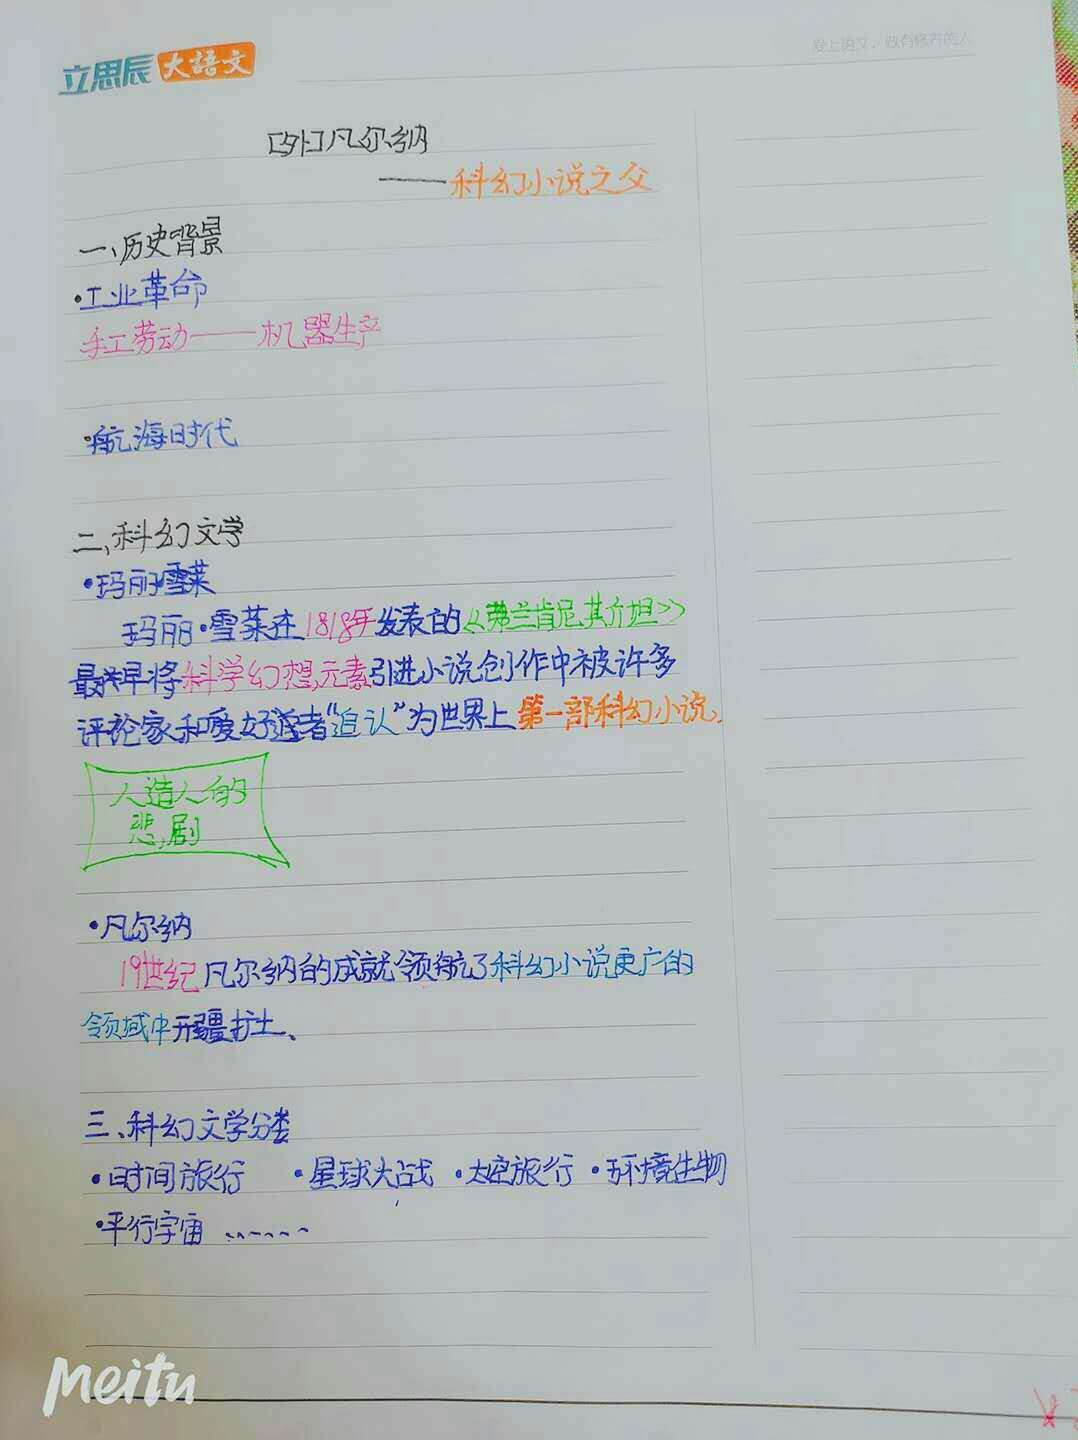 立思辰大語文
爱上语文，做有修养的人
[外]凡尔纳
——科幻小说之父
一、历史背景
·工业革命
手工劳动——机器生产
·航海时代
二、科幻文学
·玛丽雪莱
玛丽·雪莱在1818年发表的《弗兰肯尼其斤坦》
最早将科学幻想元素引进小说创作中被许多
评论家和爱好者“追认”为世界上第一部科幻小说.
人造人的
悲剧
·凡尔纳
19世纪凡尔纳的成就领航了科幻小说更广的
领域中开疆扩土、
三、科幻文学分类
·时间旅行 ·星球大战 ·太空旅行 ·环境生物
·平行宇宙 ......
Meitu